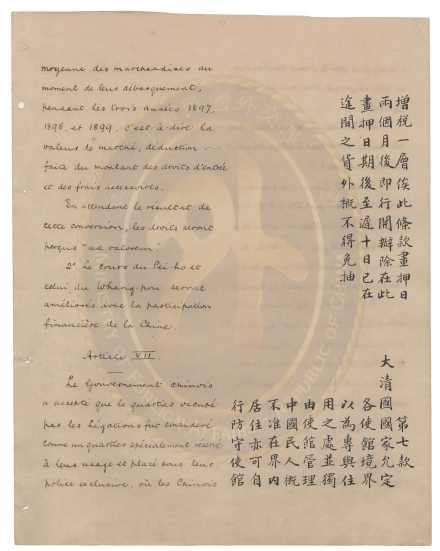 moyenne des marchandises au
moment de leur débarquement,
pendant les trois années 1897,
1898 et 1899, c'est à dire la
valeur du marché, déduction
faite du montant des droits d'entrée
et des frais accessoires.
En attendant le résultat de
cette conversion, les droits seront
perçus "ad valorem".
2° Le cours du Pei-ho et
celui du Whang-pou seront
améliorés avec la participation
financière de la Chine.
Article VII.
Le Gouvernement chinois
a accepté que le quartier occupé
par les légations fût considéré
comme un quartier spécialement réservé
à leur usage et placé sous leur
police exclusive, où les Chinois
增税一層俟此條款畫押日
兩個月後即行開辦除在此
畫押日期後至遲十日已在
途間之貨外概不得免抽
第七款
大清國國家允定
各使館境界
以為專與住
用之處並獨
由使館管理
中國民人概
不准在界內
居住亦可自
行防守使館